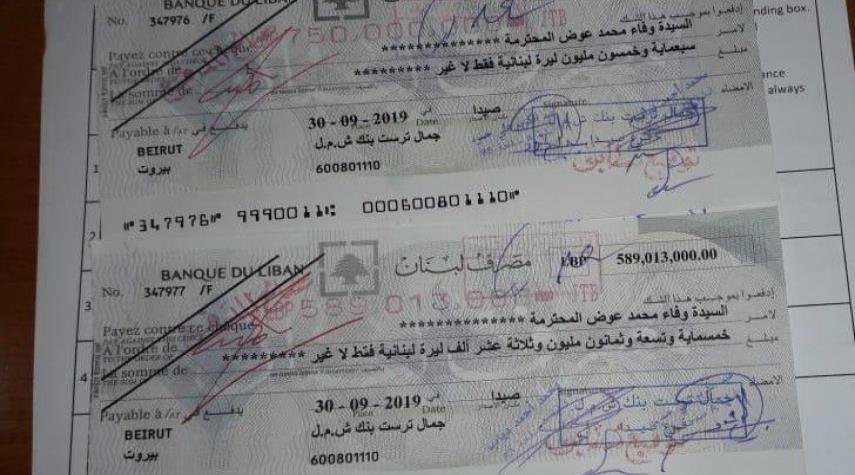 BANQUE DU LIBAN
No. 347976 /F
750,000,000 JTB
nding box.
إدفعوا بموجب هذا الشك
Payez contre ce chèque
لامر السيدة وفاء محمد عوض المحترمة **************
A l'ordre de
مبلغ سبعماية وخمسون مليون ليرة لبنانية فقط لا غير *********
La somme de
ance
always
الامضاء
Signature
صيدا
في 30 - 09 - 2019
Date
Payable à /AT يدفع في
جمال ترست بنك ش.م.ل
BEIRUT
بيروت
600801110
1
⑈347976⑈ 9990011⑆ 000600801110⑈
2
BANQUE DU LIBAN
مصرف لبنان
LBP 589,013,000.00
No. 347977 /F
589,013,000 JTB
3
إدفعوا بموجب هذا الشك
Payez contre ce chèque
لامر السيدة وفاء محمد عوض المحترمة **************
A l'ordre de
مبلغ خمسماية وتسعة وثمانون مليون وثلاثة عشر ألف ليرة لبنانية فقط لا غير *********
La somme de
4
الامضاء
Signature
صيدا
في 30 - 09 - 2019
Place
Date
Payable à /AT يدفع في
جمال ترست بنك ش.م.ل
BEIRUT
بيروت
600801110